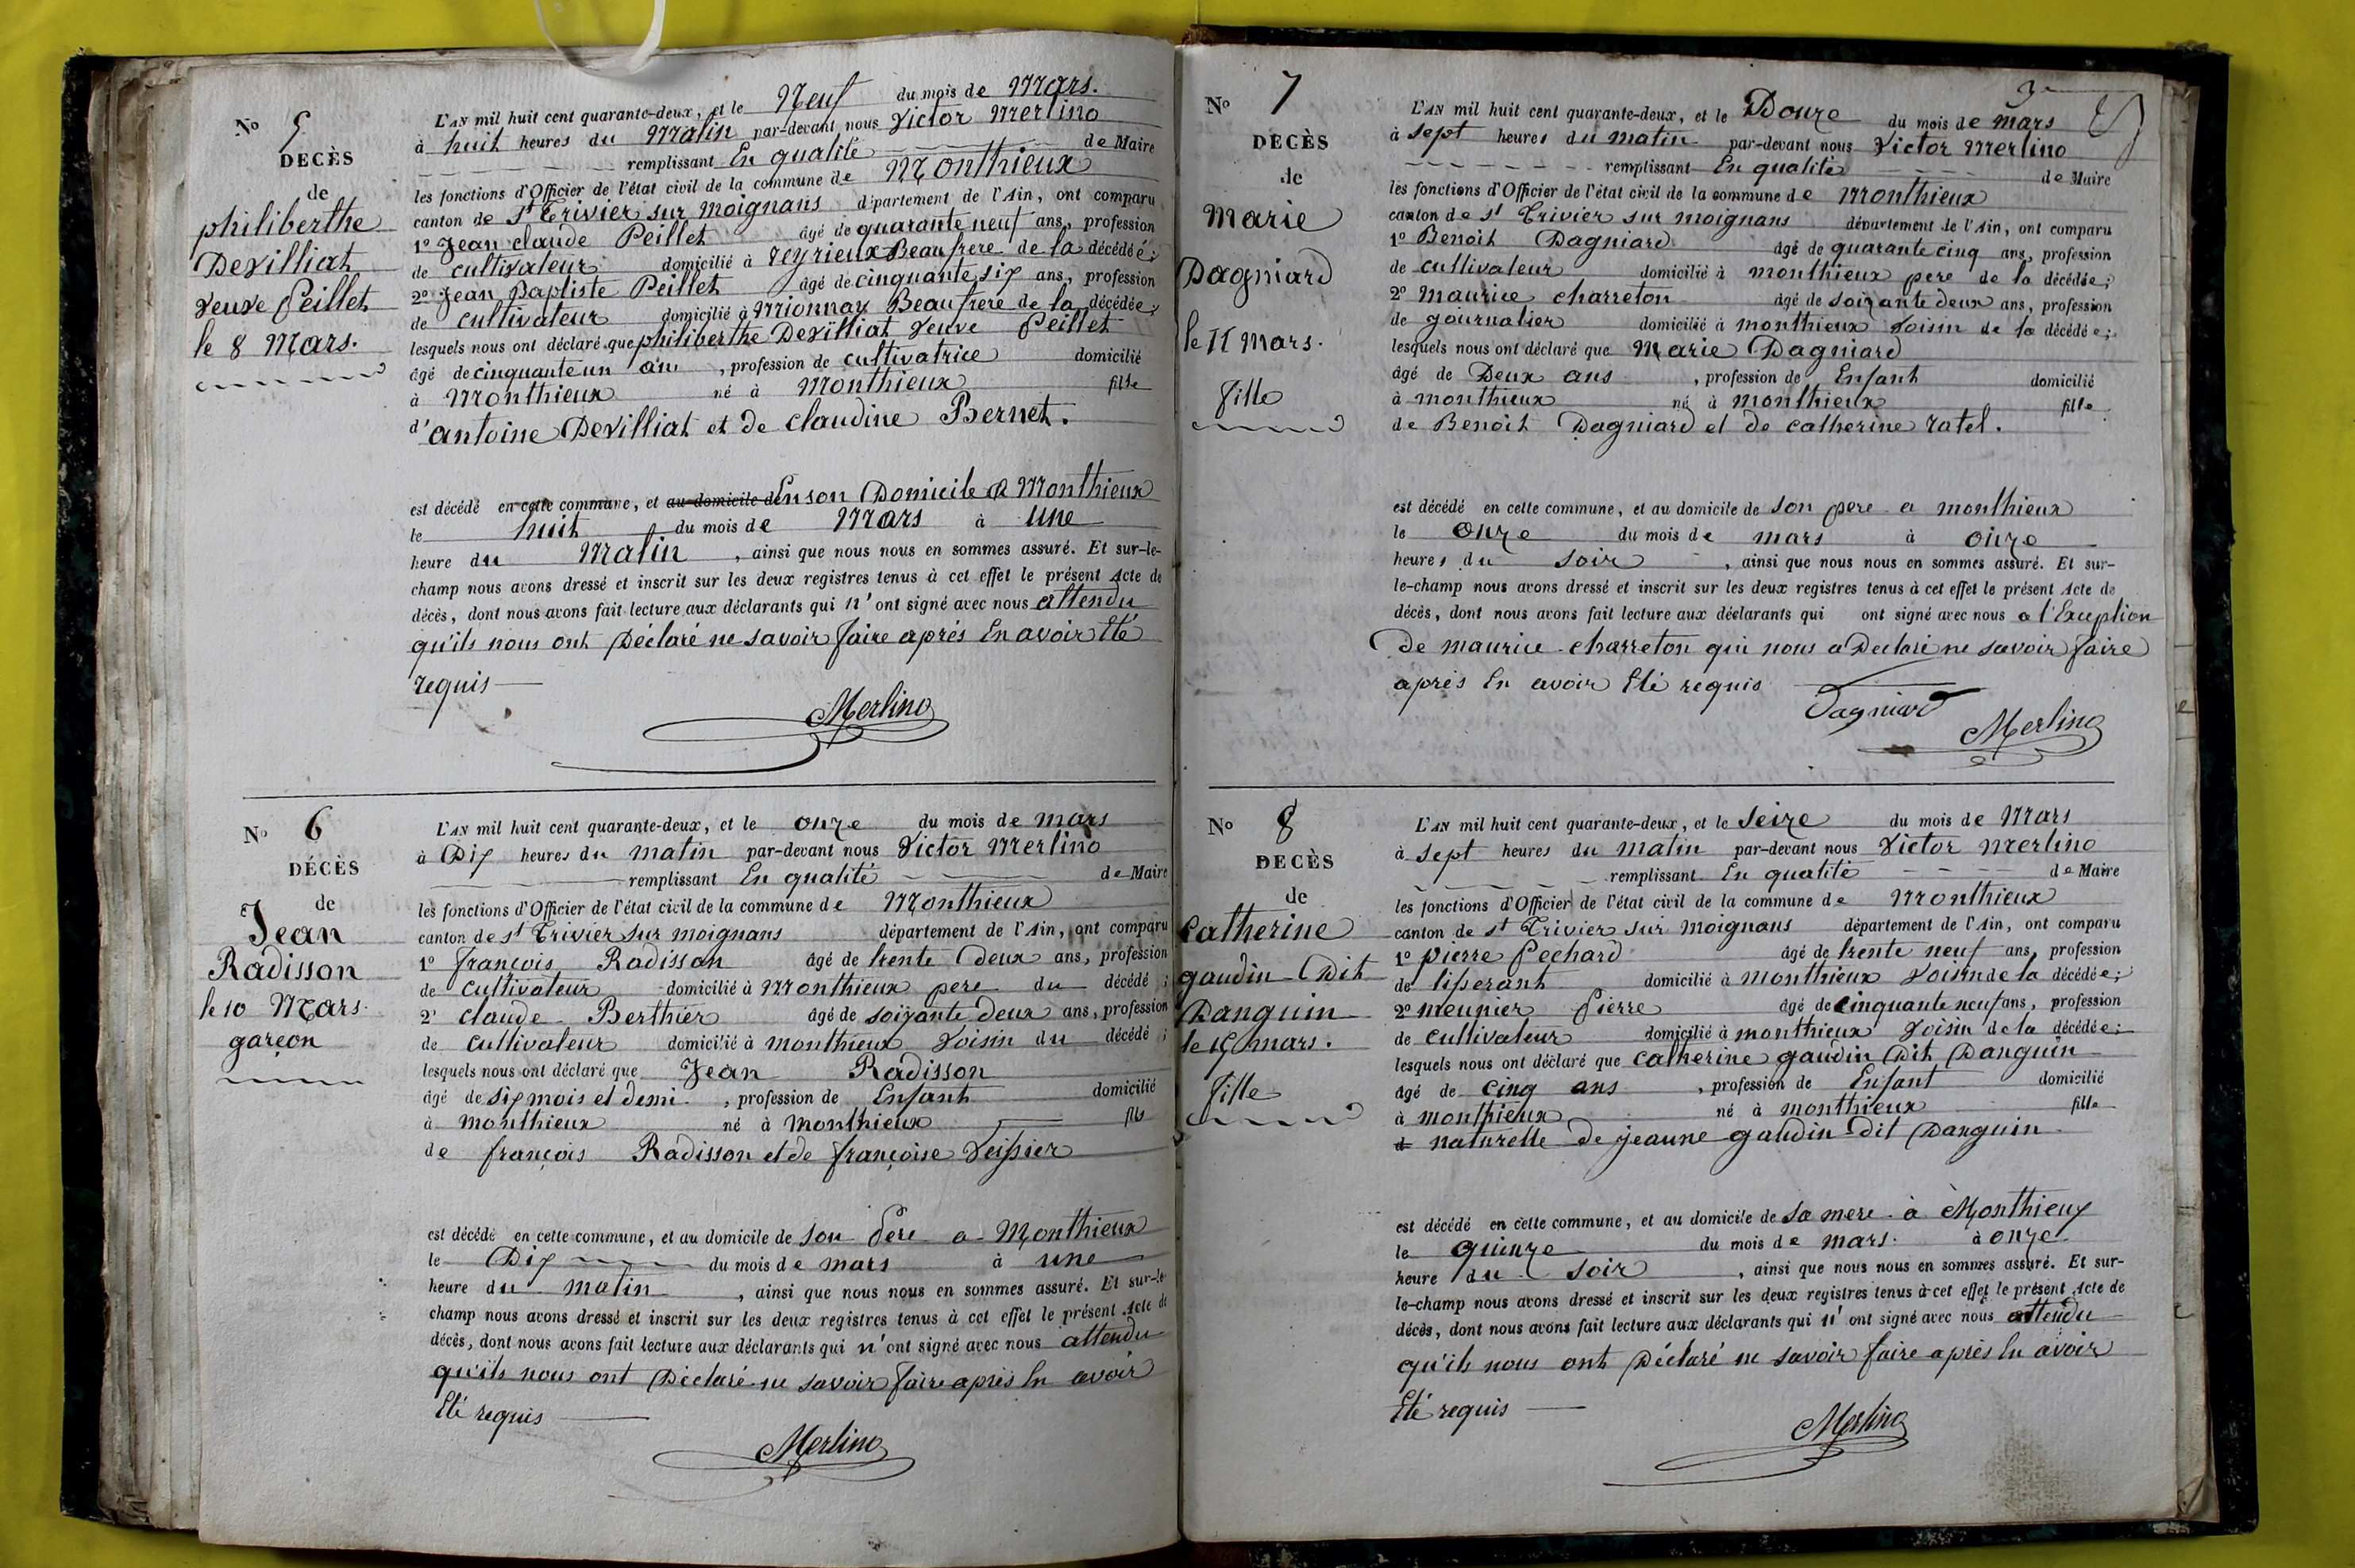 No 5
DECÈS
de
philiberthe
Devilliat
veuve Peillet
le 8 Mars.
L'AN mil huit cent quarante-deux, et le Neuf du mois de Mars.
à huit heures du Matin par-devant nous Victor Merlino
remplissant En qualité de Maire
les fonctions d'Officier de l'état civil de la commune de Monthieux
canton de St Trivier sur moignans département de l'Ain, ont comparu
1o Jean claude Peillet âgé de quarante neuf ans, profession
de cultivateur domicilié à reyrieux Beaufrere de la décédéé;
2o Jean Baptiste Peillet âgé de cinquante six ans, profession
de cultivateur domicilié à Mionnay Beaufrere de la décédée;
lesquels nous ont déclaré que philiberthe Devilliat veuve Peillet
âgé de cinquante un an , profession de cultivatrice domicilié
à Monthieux né à Monthieux fille
d'antoine Devilliat et de claudine Bernet.
est décédé en cette commune, et au domicile d En son Domicile a Monthieux
le huit du mois de Mars à Une
heure du Matin , ainsi que nous nous en sommes assuré. Et sur-le-
champ nous avons dressé et inscrit sur les deux registres tenus à cet effet le présent Acte de
décès, dont nous avons fait lecture aux déclarants qui n'ont signé avec nous attendu
qu'ils nous ont Déclaré ne savoir faire aprés En avoir Eté
requis
Merlino
No 6
DÉCÈS
de
Jean
Radisson
le 10 Mars.
garçon
L'AN mil huit cent quarante-deux, et le onze du mois de mars
à Dix heures du matin par-devant nous Victor Merlino
remplissant En qualité de Maire
les fonctions d'Officier de l'état civil de la commune de Monthieux
canton de St Trivier sur moignans département de l'Ain, ont comparu
1o françois Radisson âgé de trente Deux ans, profession
de cultivateur domicilié à Monthieux pere du décédé ;
2o claude Berthier âgé de soixante Deux ans, profession
de cultivateur domicilié à monthieux Voisin du décédé ;
lesquels nous ont déclaré que Jean Radisson
âgé de six mois et demi , profession de Enfant domicilié
à monthieux né à Monthieux fils
de françois Radisson et de françoise Veissier
est décédé en cette commune, et au domicile de son Pere a Monthieux
le Dix du mois de mars à une
heure du matin , ainsi que nous nous en sommes assuré. Et sur-le-
champ nous avons dressé et inscrit sur les deux registres tenus à cet effet le présent Acte de
décès, dont nous avons fait lecture aux déclarants qui n'ont signé avec nous attendu
qu'ils nous ont Déclaré ne savoir faire aprés En avoir
Eté requis
Merlino
3
No 7
DECÈS
de
Marie
Dagniard
le 11 mars.
fille
L'AN mil huit cent quarante-deux, et le Douze du mois de mars
à sept heures du matin par-devant nous Victor Merlino
remplissant En qualité de Maire
les fonctions d'Officier de l'état civil de la commune de Monthieux
canton de St Trivier sur moignans département de l'Ain, ont comparu
1o Benoit Dagniard âgé de quarante cinq ans, profession
de cultivateur domicilié à monthieux pere de la décédée;
2o maurice charreton âgé de soixante deux ans, profession
de journalier domicilié à monthieux Voisin de la décédée;
lesquels nous ont déclaré que Marie Dagniard
âgé de Deux ans , profession de Enfant domicilié
à monthieux né à monthieux fille
de Benoit Dagniard et de catherine ratel.
est décédé en cette commune, et au domicile de son pere a monthieux
le onze du mois de mars à onze
heures du soir , ainsi que nous nous en sommes assuré. Et sur-
le-champ nous avons dressé et inscrit sur les deux registres tenus à cet effet le présent Acte de
décès, dont nous avons fait lecture aux déclarants qui ont signé avec nous a l'Exception
De maurice charreton qui nous a Declaré ne savoir faire
aprés En avoir Eté requis
Dagniard
Merlino
No 8
DECÈS
de
Catherine
gaudin Dit
Danguin
le 15 mars.
fille
L'AN mil huit cent quarante-deux, et le seize du mois de Mars
à sept heures du matin par-devant nous Victor Merlino
remplissant En qualité de Maire
les fonctions d'Officier de l'état civil de la commune de Monthieux
canton de St Trivier sur moignans département de l'Ain, ont comparu
1o pierre Pechard âgé de trente neuf ans, profession
de tisserant domicilié à monthieux Voisin de la décédée;
2o meunier Pierre âgé de cinquante neuf ans, profession
de cultivateur domicilié à monthieux Voisin de la décédée;
lesquels nous ont déclaré que catherine gaudin Dit Danguin
âgé de cinq ans , profession de Enfant domicilié
à monthieux né à monthieux fille
d naturelle de jeanne gaudin Dit Danguin
est décédé en cette commune, et au domicile de sa mere à Monthieux
le quinze du mois de mars. à onze
heure du soir , ainsi que nous nous en sommes assuré. Et sur-
le-champ nous avons dressé et inscrit sur les deux registres tenus à cet effet le présent Acte de
décès, dont nous avons fait lecture aux déclarants qui n'ont signé avec nous attendu
qu'ils nous ont Déclaré ne savoir faire aprés En avoir
Eté requis
Merlino